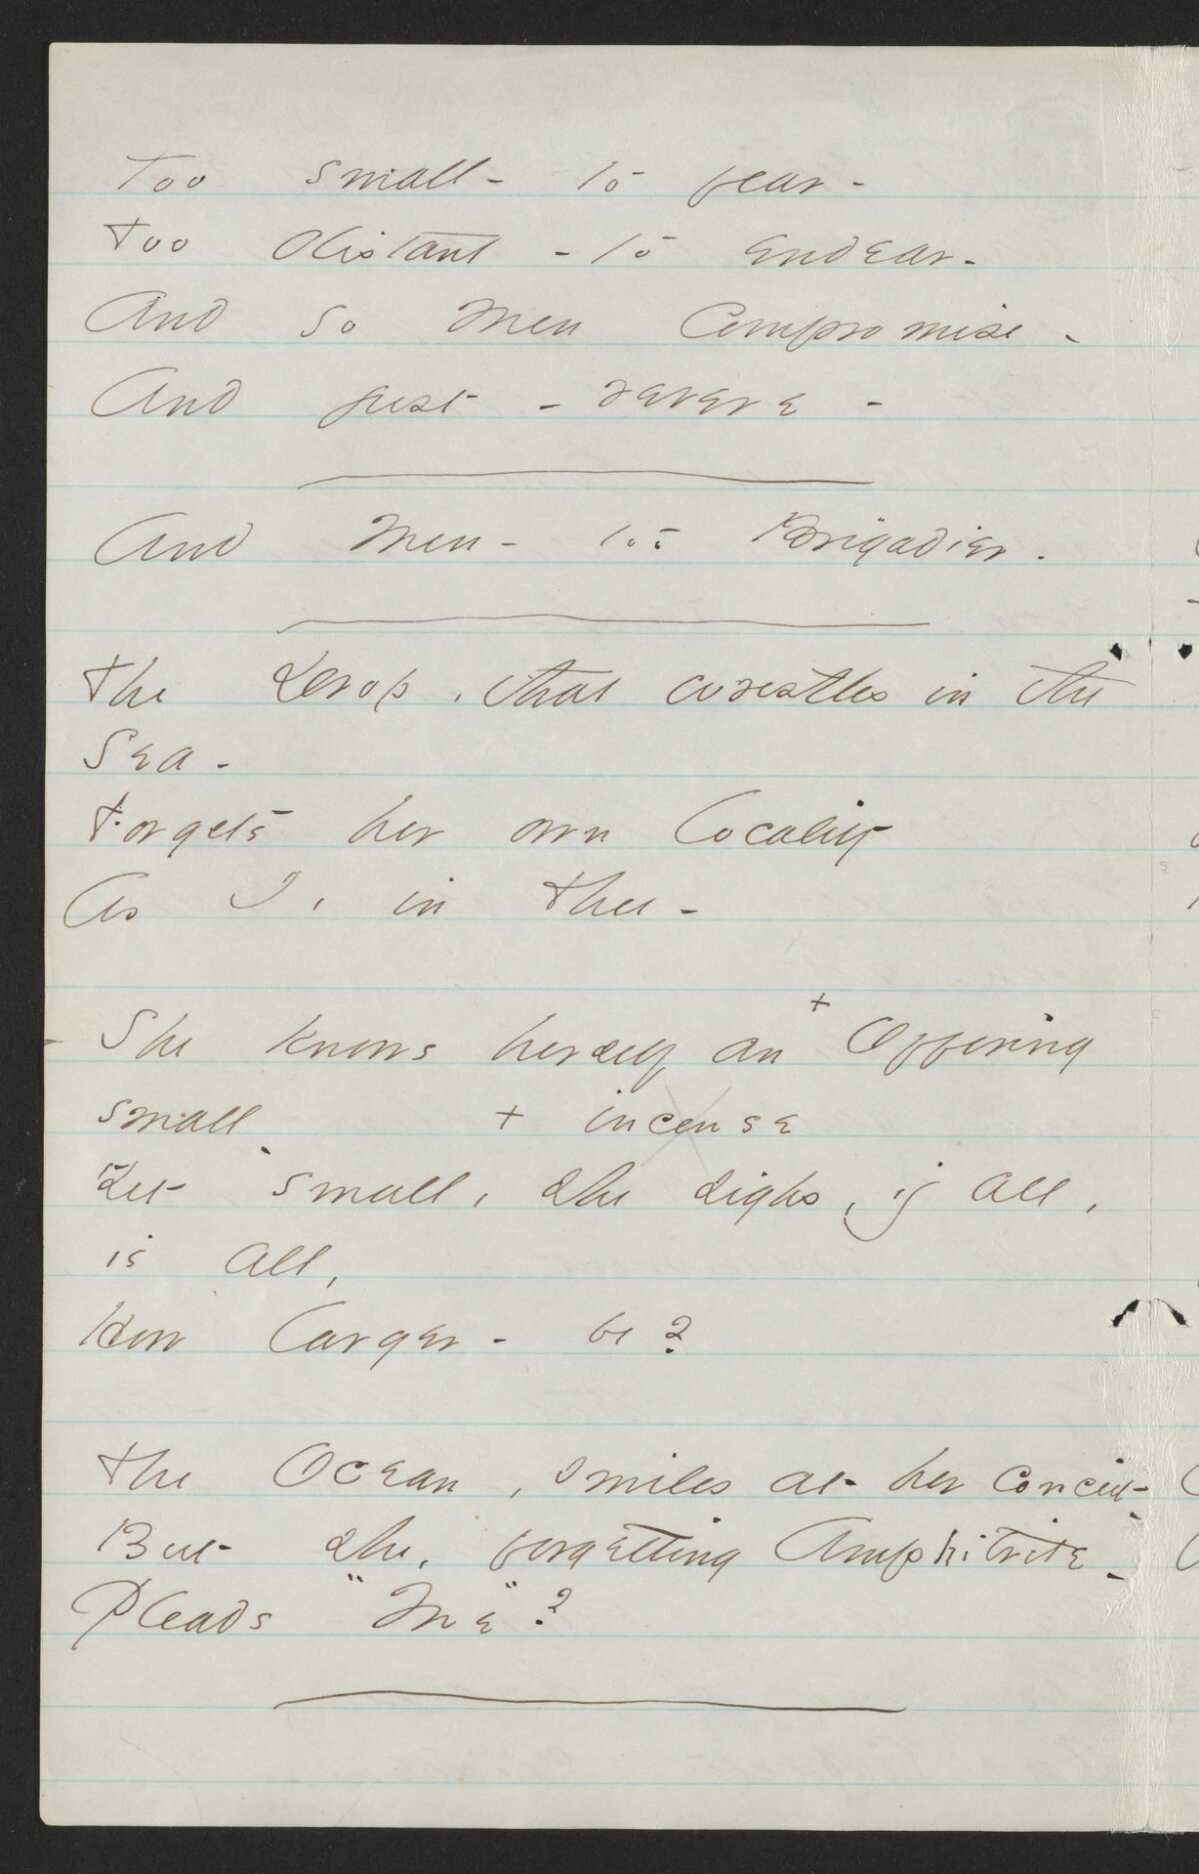 Too small - to fear -
Too distant - to endear -
And so Men Compromise -
And just - revere -
And Men - too Brigadier -
The Drop, that wrestles in the
Sea -
Forgets her own locality
As I, in Thee -
She knows herself an + Offering
small + incense
Yet small, she sighs, if All,
is All,
How larger - be?
The Ocean, smiles at her Conceit -
But she, forgetting Amphitrite -
Pleads "Me"?